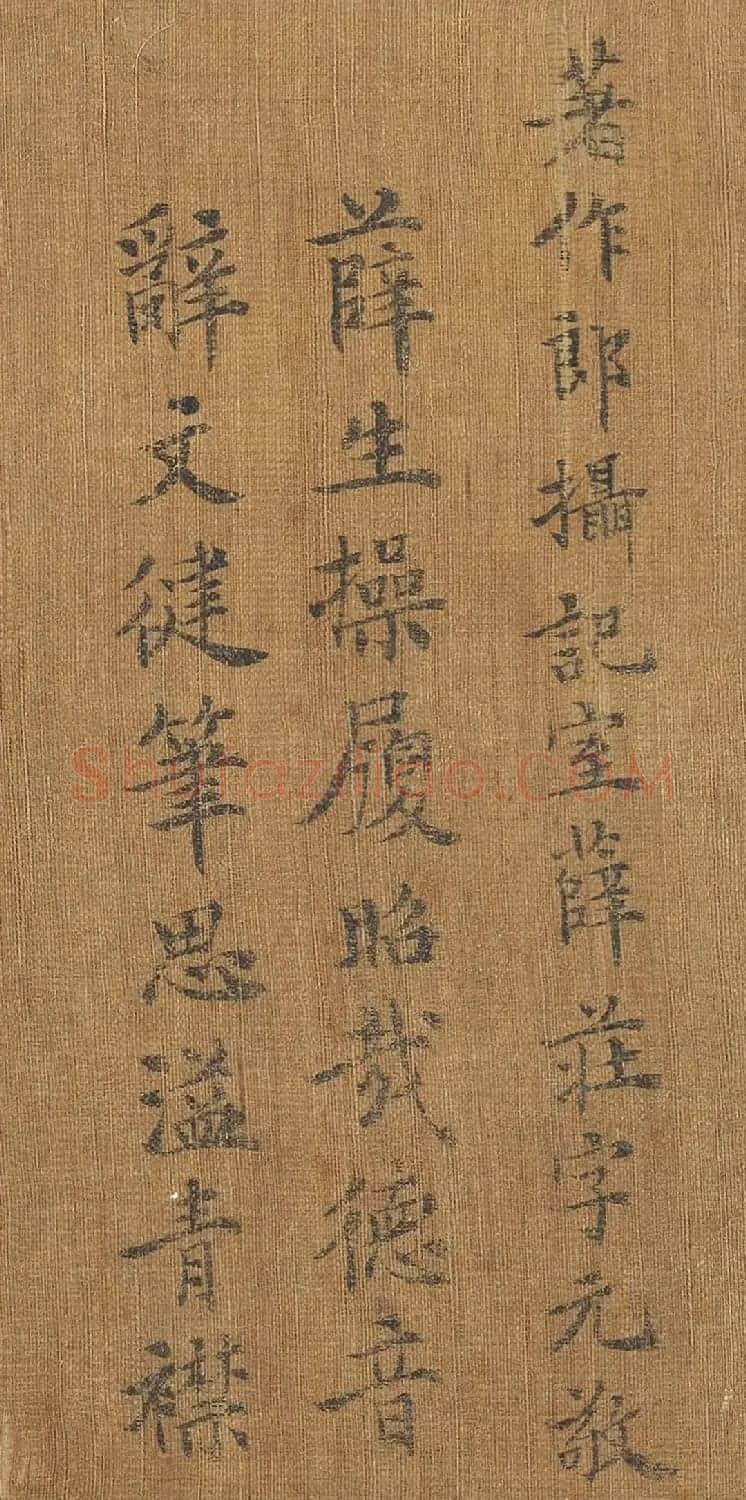 著作郎攝記室薛莊字元敬
薛生操履昭哉德音
辭文健筆思溢青襟